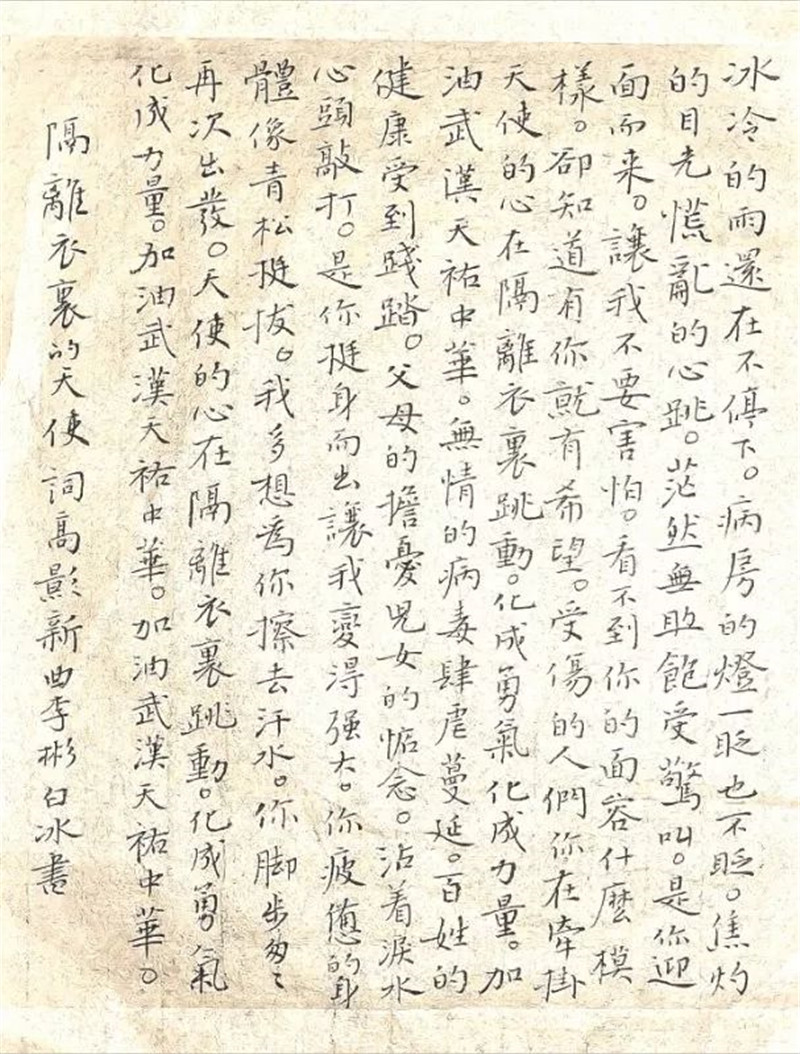 冰冷的雨還在不停下。病房的燈一眨也不眨。焦灼
的目光慌亂的心跳。茫然無助飽受驚叫。是你迎
面而来。讓我不要害怕。看不到你的面容什麼模
樣。卻知道有你就有希望。受傷的人們你在牽掛
天使的心在隔離衣裏跳動。化成勇氣化成力量。加
油武漢天祐中華。無情的病毒肆虐蔓延。百姓的
健康受到踐踏。父母的擔憂兒女的惦念。沾着淚水
心頭敲打。是你挺身而出讓我變得强大。你疲憊的身
體像青松挺拔。我多想為你擦去汗水。你脚步匆匆
再次出發。天使的心在隔離衣裏跳動。化成勇氣
化成力量。加油武漢天祐中華。加油武漢天祐中華。
隔離衣裏的天使詞高影新曲李彬白冰書